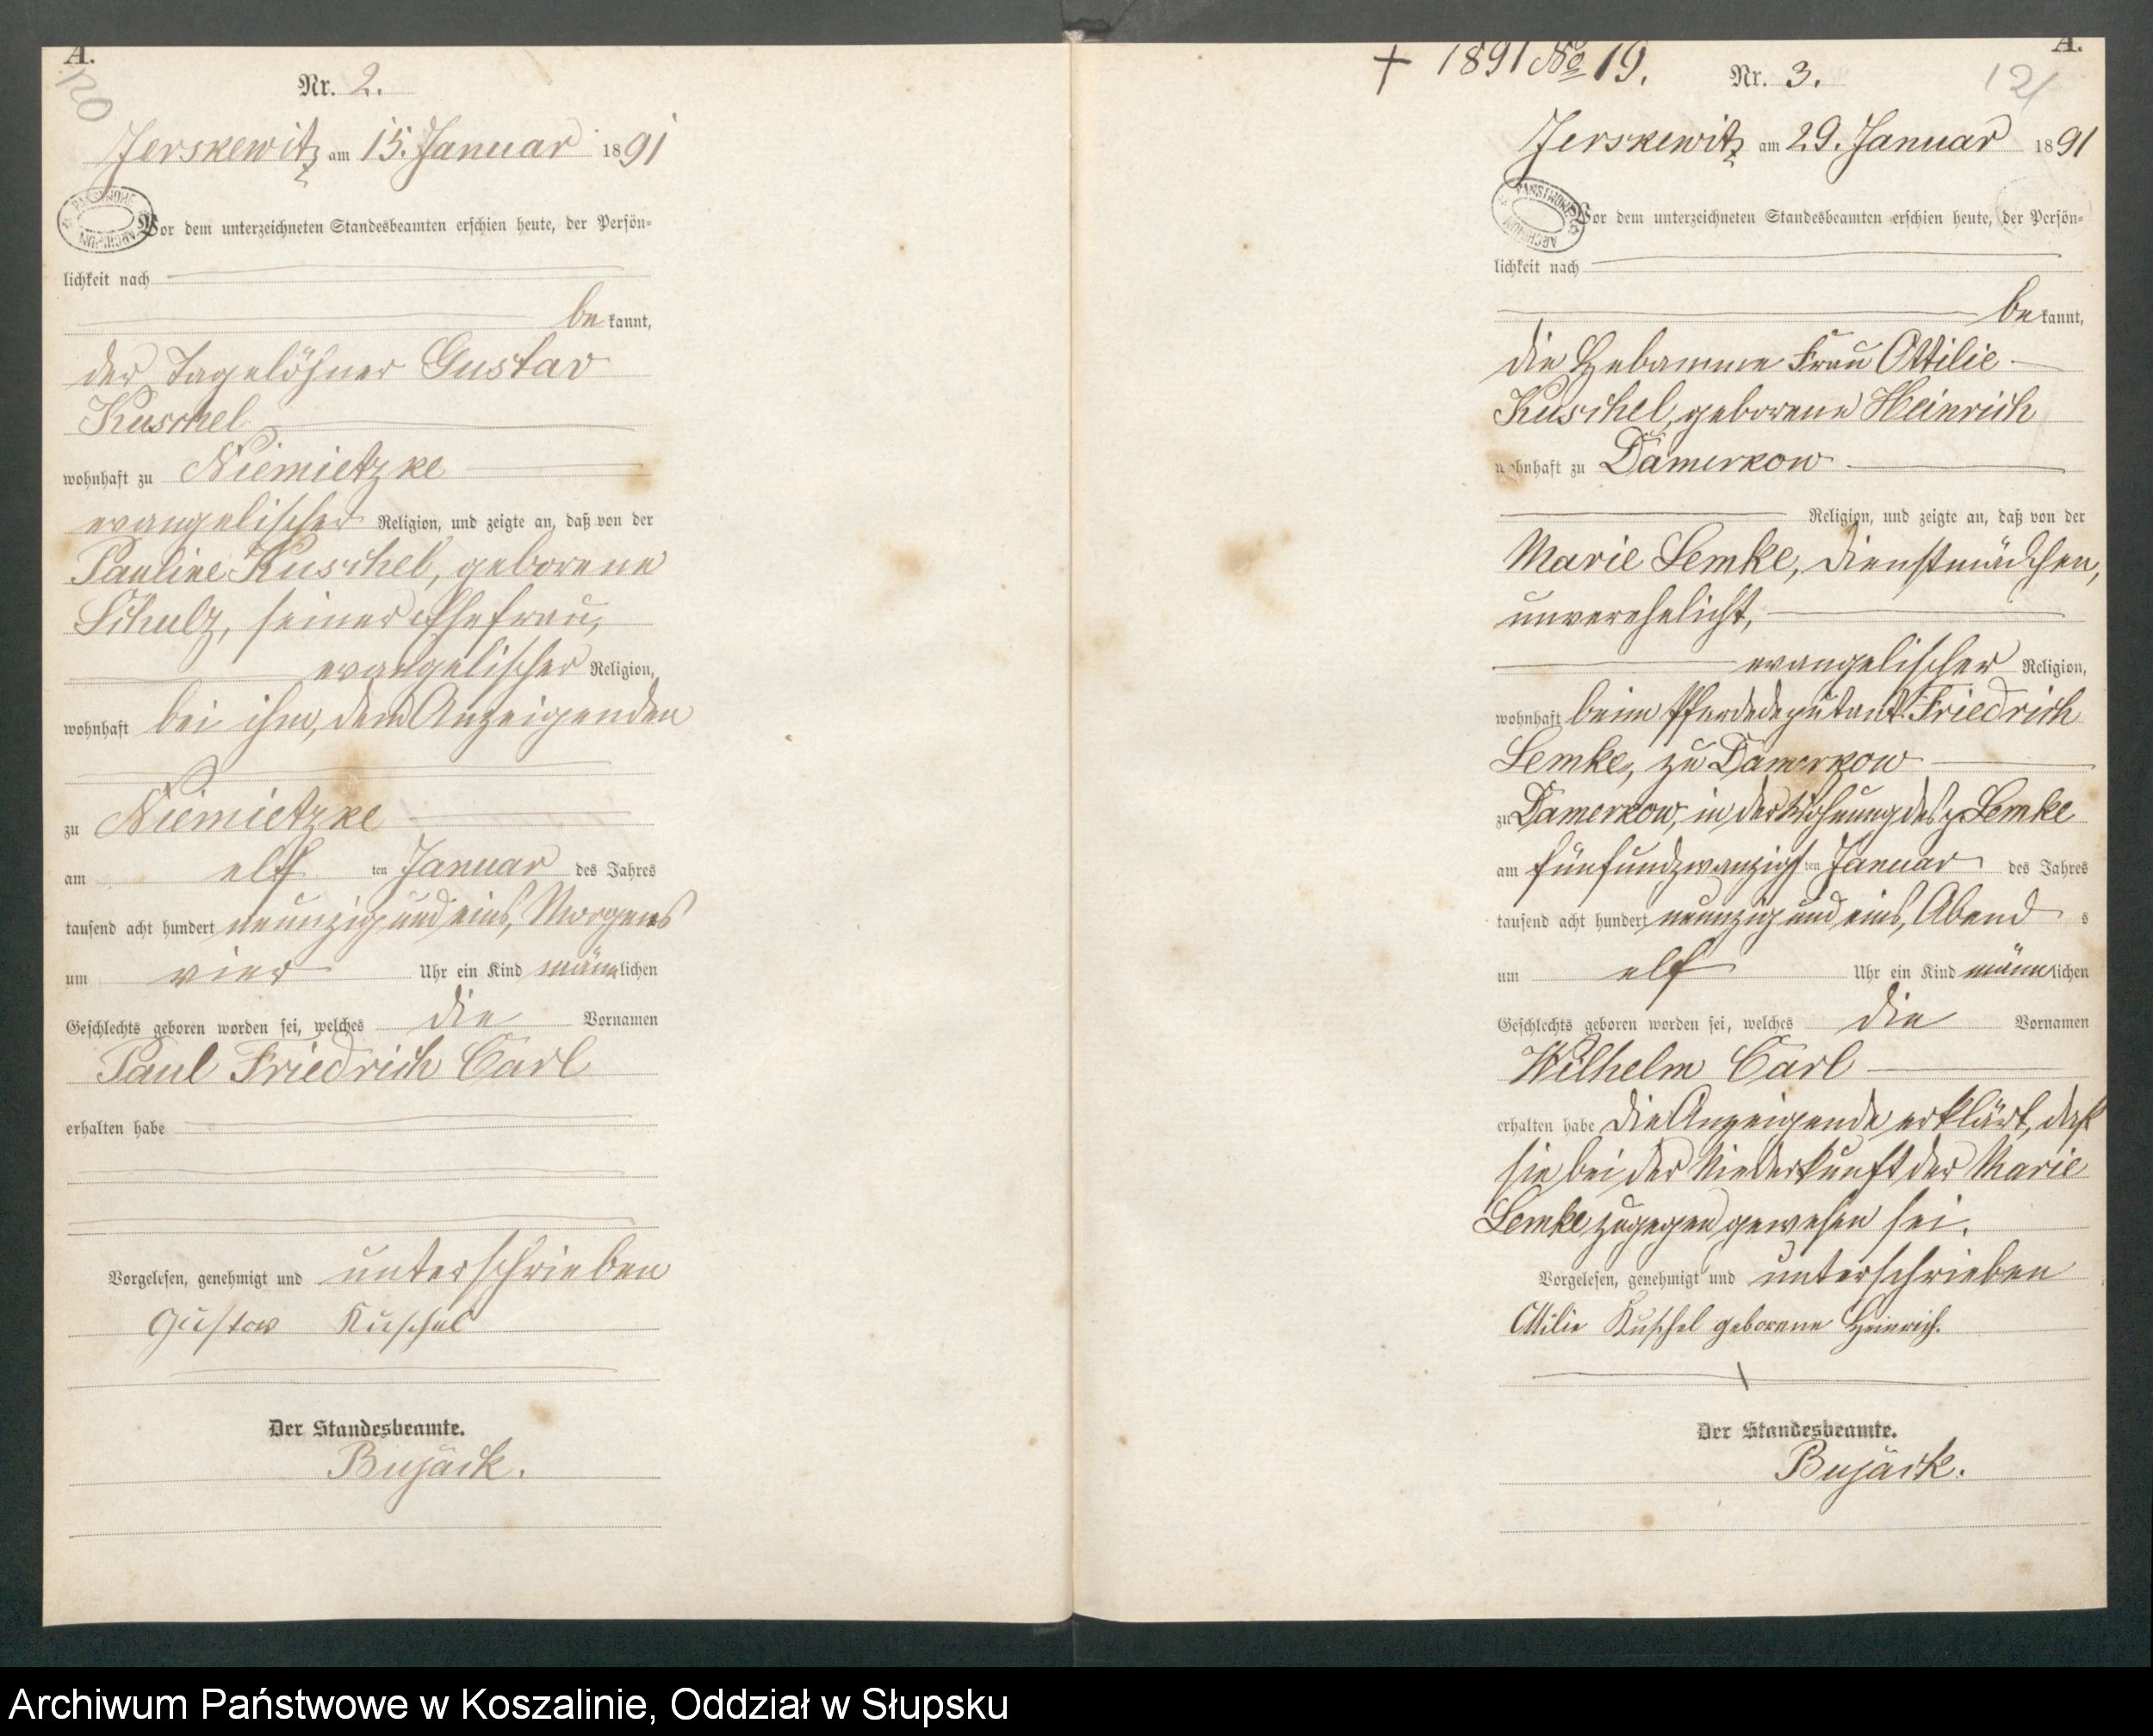 A.
120
Nr. 2.
Jerskewitz am 15. Januar 1891
Vor dem unterzeichneten Standesbeamten erschien heute, der Persön-
lichkeit nach
bekannt,
der Tagelöhner Gustav
Kuschel
wohnhaft zu Niemietzke
evangelischer Religion, und zeigte an, daß von der
Pauline Kuschel, geborene
Schulz, seiner Ehefrau,
evangelischer Religion,
wohnhaft bei ihm, dem Anzeigenden
zu Niemietzke
am elf ten Januar des Jahres
tausend acht hundert neunzig und eins, Morgens
um vier Uhr ein Kind männlichen
Geschlechts geboren worden sei, welches die Vornamen
Paul Friedrich Carl
erhalten habe
Vorgelesen, genehmigt und unterschrieben
Gustav Kuschel
Der Standesbeamte.
Bujack.
A.
+ 1891 No 19. Nr. 3.
121
Jerskewitz am 29. Januar 1891
PAŃSTWOWE ARCHIWUM
Vor dem unterzeichneten Standesbeamten erschien heute, der Persön-
lichkeit nach
bekannt,
die Hebamme Frau Ottilie
Kuschel, geborene Heinrich
wohnhaft zu Damerkow
Religion, und zeigte an, daß von der
Marie Lemke, Dienstmädchen,
unverehelicht,
evangelischer Religion,
wohnhaft beim Pferdedeputant Friedrich
Lemke, zu Damerkow
zu Damerkow, in der Wohnung des p. Lemke
am fünfundzwanzigsten Januar des Jahres
tausend acht hundert neunzig und eins, Abends
um elf Uhr ein Kind männlichen
Geschlechts geboren worden sei, welches die Vornamen
Wilhelm Carl
erhalten habe Die Anzeigende erklärt, daß
sie bei der Niederkunft der Marie
Lemke zugegen gewesen sei.
Vorgelesen, genehmigt und unterschrieben
Ottilie Kuschel geborene Heinrich.
Der Standesbeamte.
Bujack.
Archiwum Państwowe w Koszalinie, Oddział w Słupsku